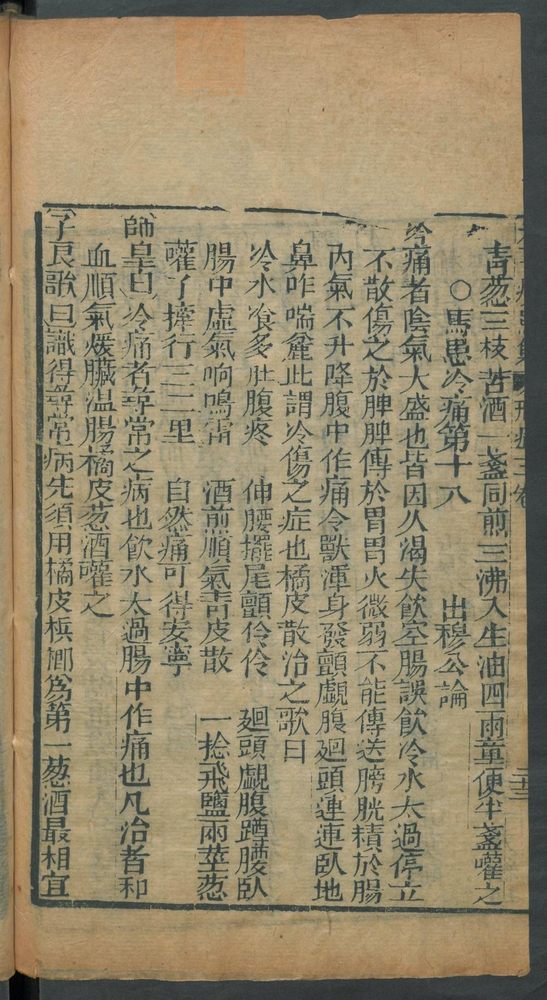 青葱三枝苦酒一盞同煎三沸入生油四兩童便半盞嚾之
○馬患冷痛第十八 出穆公論
冷痛者陰氣大盛也皆因久渴失飲空腸誤飲冷水太過停立
不散傷之於脾脾傳於胃胃火微弱不能傳送膀胱積於腸
內氣不升降腹中作痛令獸渾身發顫覷腹廻頭連連臥地
鼻咋喘麄此謂冷傷之症也橘皮散治之歌曰
冷水飡多肚腹疼 伸腰擺尾顫伶伶 廻頭覷腹蹲腰臥
腸中虛氣响鳴雷 酒煎順氣青皮散 一捻飛鹽兩莖葱
嚾了摔行三二里 自然痛可得安寧
師皇曰冷痛者尋常之病也飲水太過腸中作痛也凡治者和
血順氣煖臟温腸橘皮葱酒嚾之
子良歌曰識得尋常病先須用橘皮梹榔爲第一葱酒最相宜